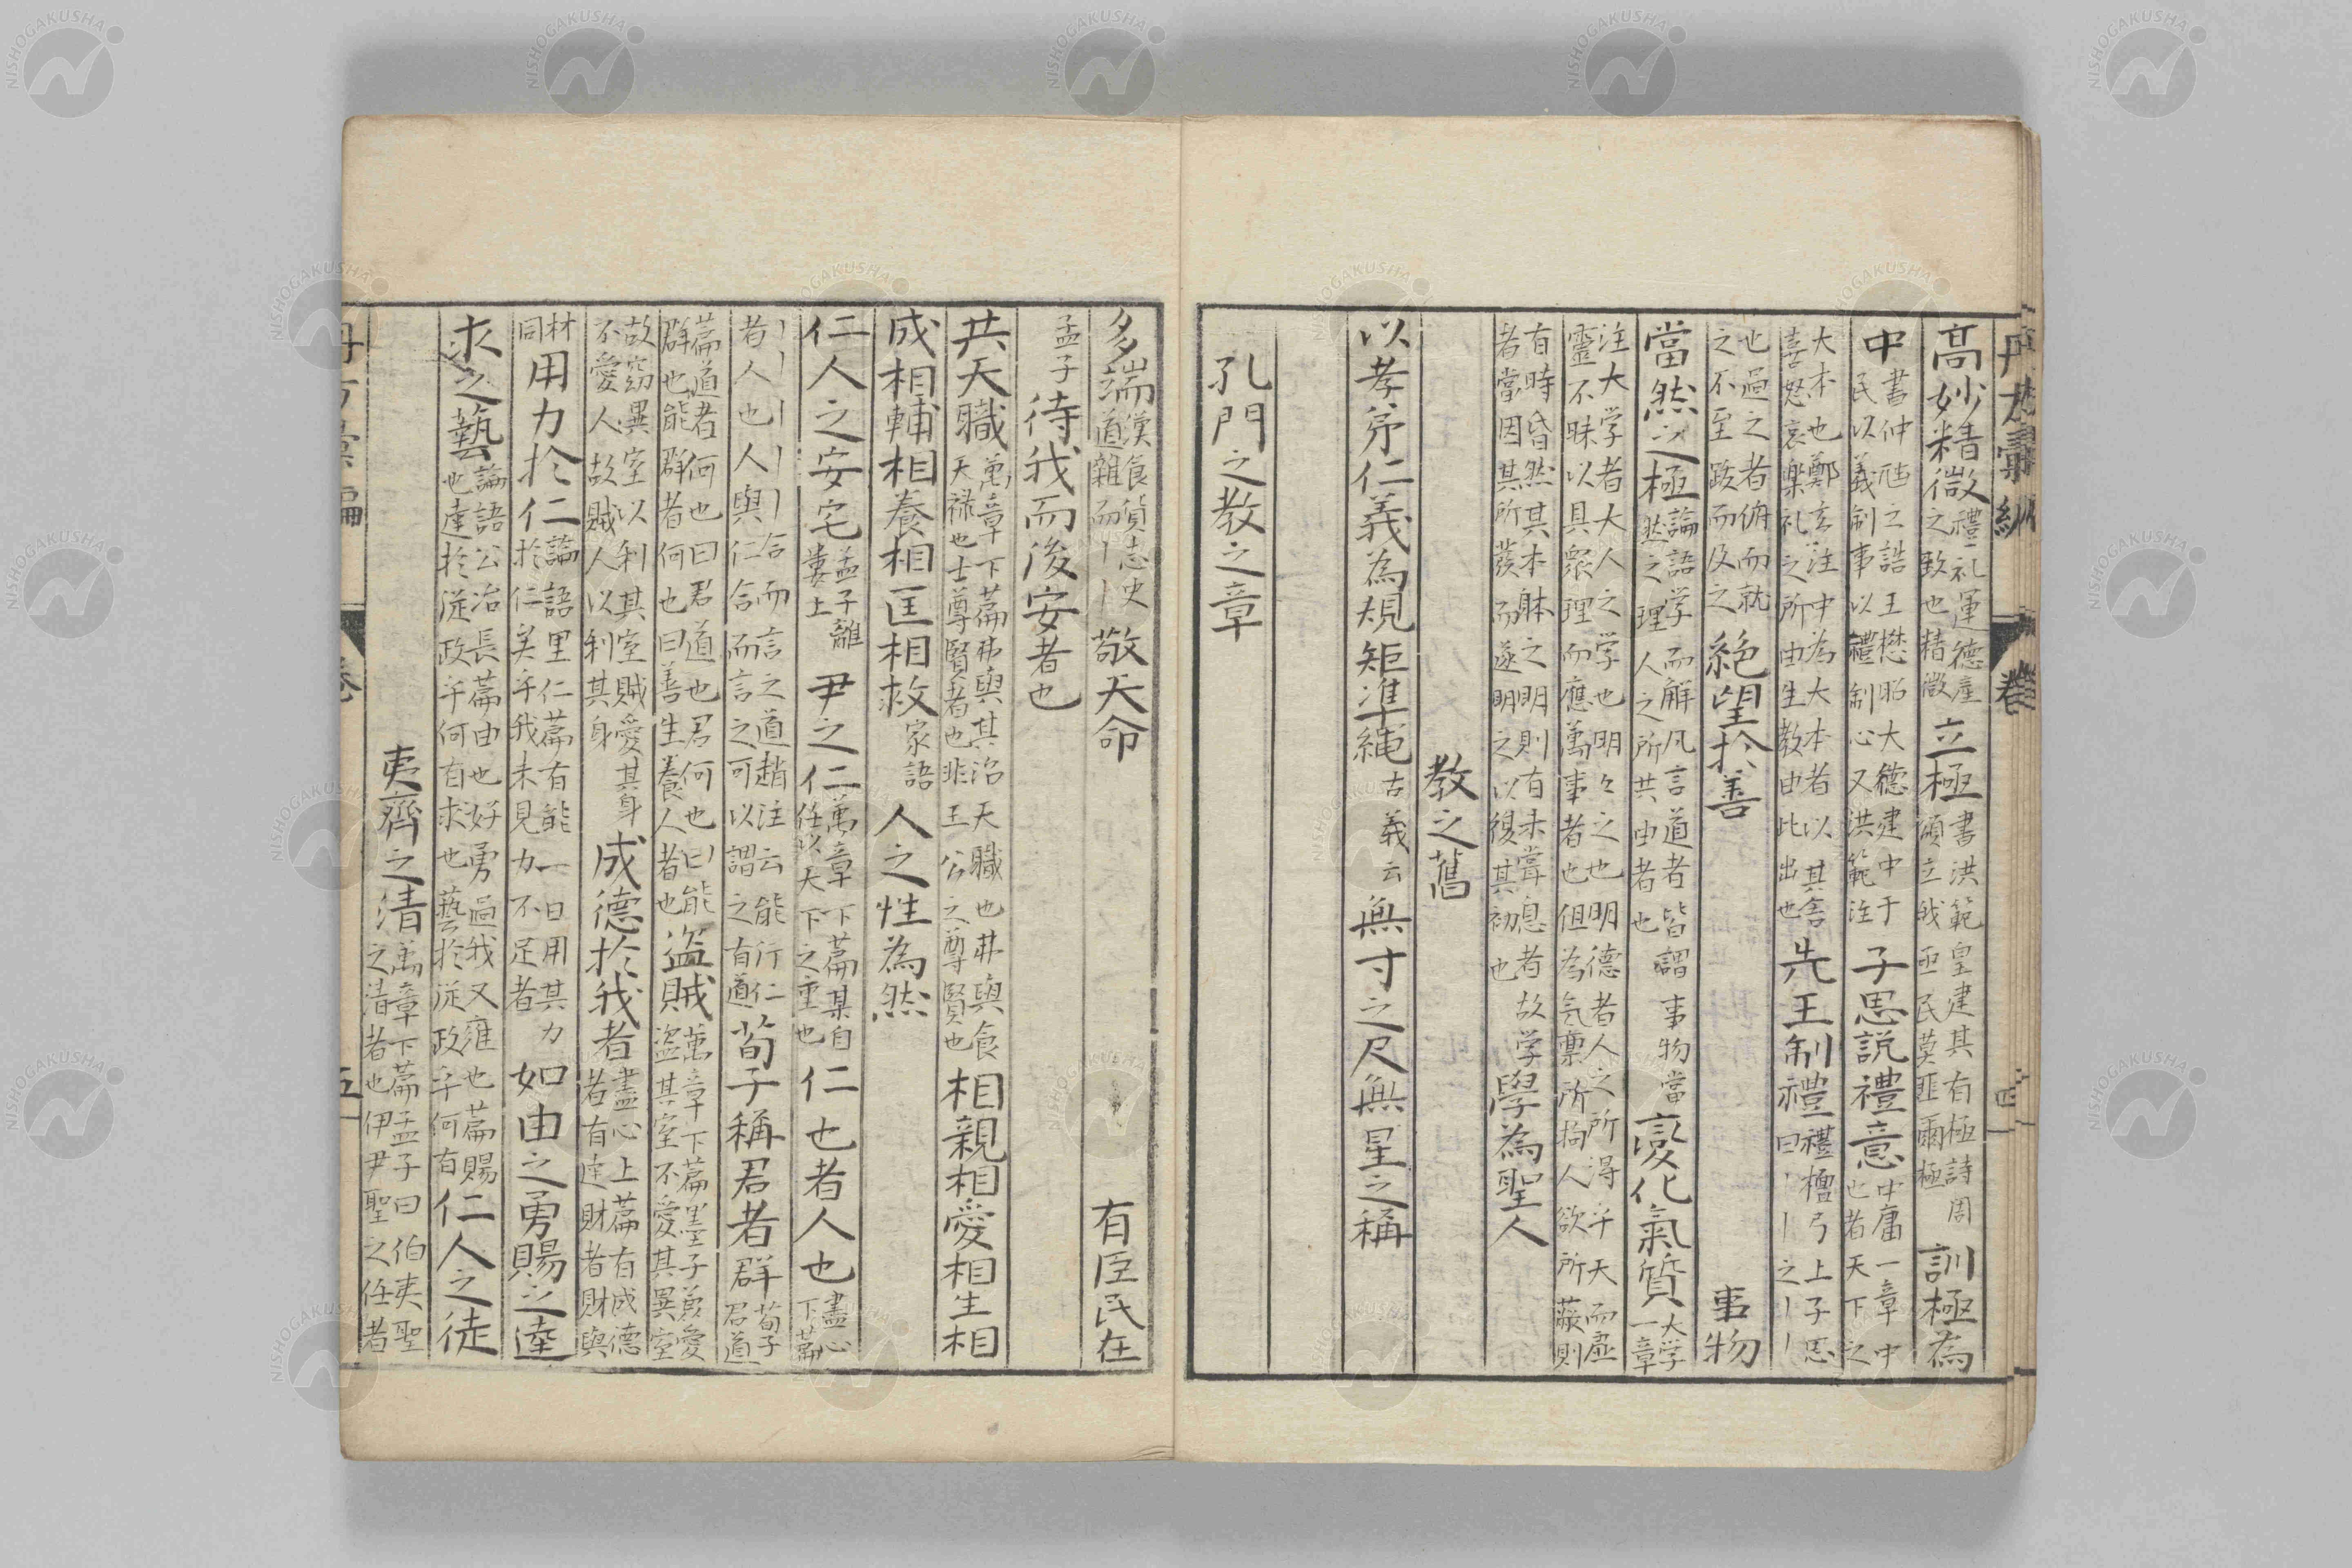 高妙精微禮礼運德産之致也精微立極書洪範皇建其有極詩周頌立我烝民莫匪爾極訓極為
中書仲虺之誥王懋昭大德建中于民以義制事以禮制心又洪範注子思説禮意中庸一章中也者天下之
大本也鄭玄注中為大本者以其含喜怒哀樂礼之所由生教由此出也先王制禮禮檀弓上子思曰丨丨之丨丨
也過之者俯而就之不至跂而及之絶望扵善事物
當然之極論語学而解凡言道者皆謂事物當然之理人之所共由者也變化氣質大学一章
注大学者大人之学也明々之也明德者人之所得乎天而虚靈不昧以具衆理而應萬事者也但為氣禀所拘人欲所蔽則
有時昏然其本体之明則有未嘗息者故学者當因其所發而遂明之以復其初也學為聖人
教之舊
以孝弟仁義為規矩準繩古義云無寸之尺無星之稱
孔門之教之章
多端漢食貨志史道雜而丨丨敬天命有臣民在
孟子待我而後安者也
共天職萬章下篇弗與共治天職也弗與食天禄也士尊賢者也非王公之尊賢也相親相愛相生相
成相輔相養相匡相救家語人之性為然
仁人之安宅孟子離婁上尹之仁萬章下篇其自任以天下之重也仁也者人也盡心下篇
丨丨丨丨合而言之道趙注云能行仁者人也人與仁合而言之可以謂之有道荀子稱君者群荀子君道
篇道者何也曰君道也君何也曰能群也能群者何也曰善生養人者也盗賊萬章下篇墨子兼愛盗其室不愛其異室
故竊異室以利其室賊愛其身不愛人故賊人以利其身成德扵我者盡心上篇有成德者有達財者財與
材同用力扵仁論語里仁篇有能一日用其力扵仁矣乎我未見力不足者如由之勇賜之達
求之藝論語公冶長篇由也好勇過我又雍也篇賜也達扵從政乎何有求也藝扵從政乎何有仁人之徒
夷齊之清萬章下篇孟子曰伯夷聖之清者也伊尹聖之任者